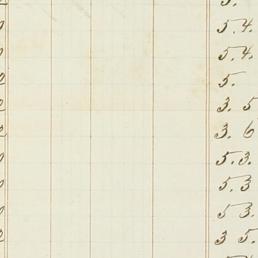 5.
5. 4.
5. 4.
5.
3. 5
3. 6
5. 3.
5. 3
5 3.
3 5.